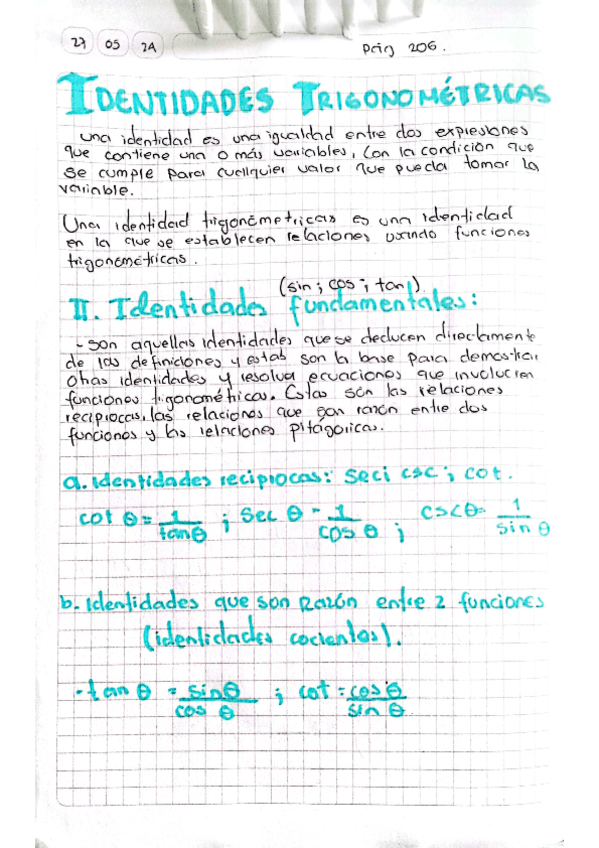 27 05 24
Pág 206.
IDENTIDADES TRIGONOMÉTRICAS
una identidad es una igualdad entre dos expresiones
que contiene una o más variables, con la condición que
se cumple para cualquier valor que pueda tomar la
variable.
Una identidad trigonométricas es una identidad
en la que se establecen relaciones usando funciones
trigonométricas.
(sin ; cos ; tan)
II. Identidades fundamentales:
- Son aquellas identidades que se deducen directamente
de las definiciones y estas son la base para demostrar
otras identidades y resolver ecuaciones que involucren
funciones trigonométricas. Estas son las relaciones
recíprocas, las relaciones que son razón entre dos
funciones y las relaciones pitágoricas.
a. Identidades reciprocas: Sec; csc ; cot.
cot θ = 1/tan θ ; Sec θ = 1/cos θ ; csc θ = 1/sin θ
b. Identidades que son Razón entre 2 funciones
(identidades cocientes).
- tan θ = sin θ/cos θ ; cot = cos θ/sin θ